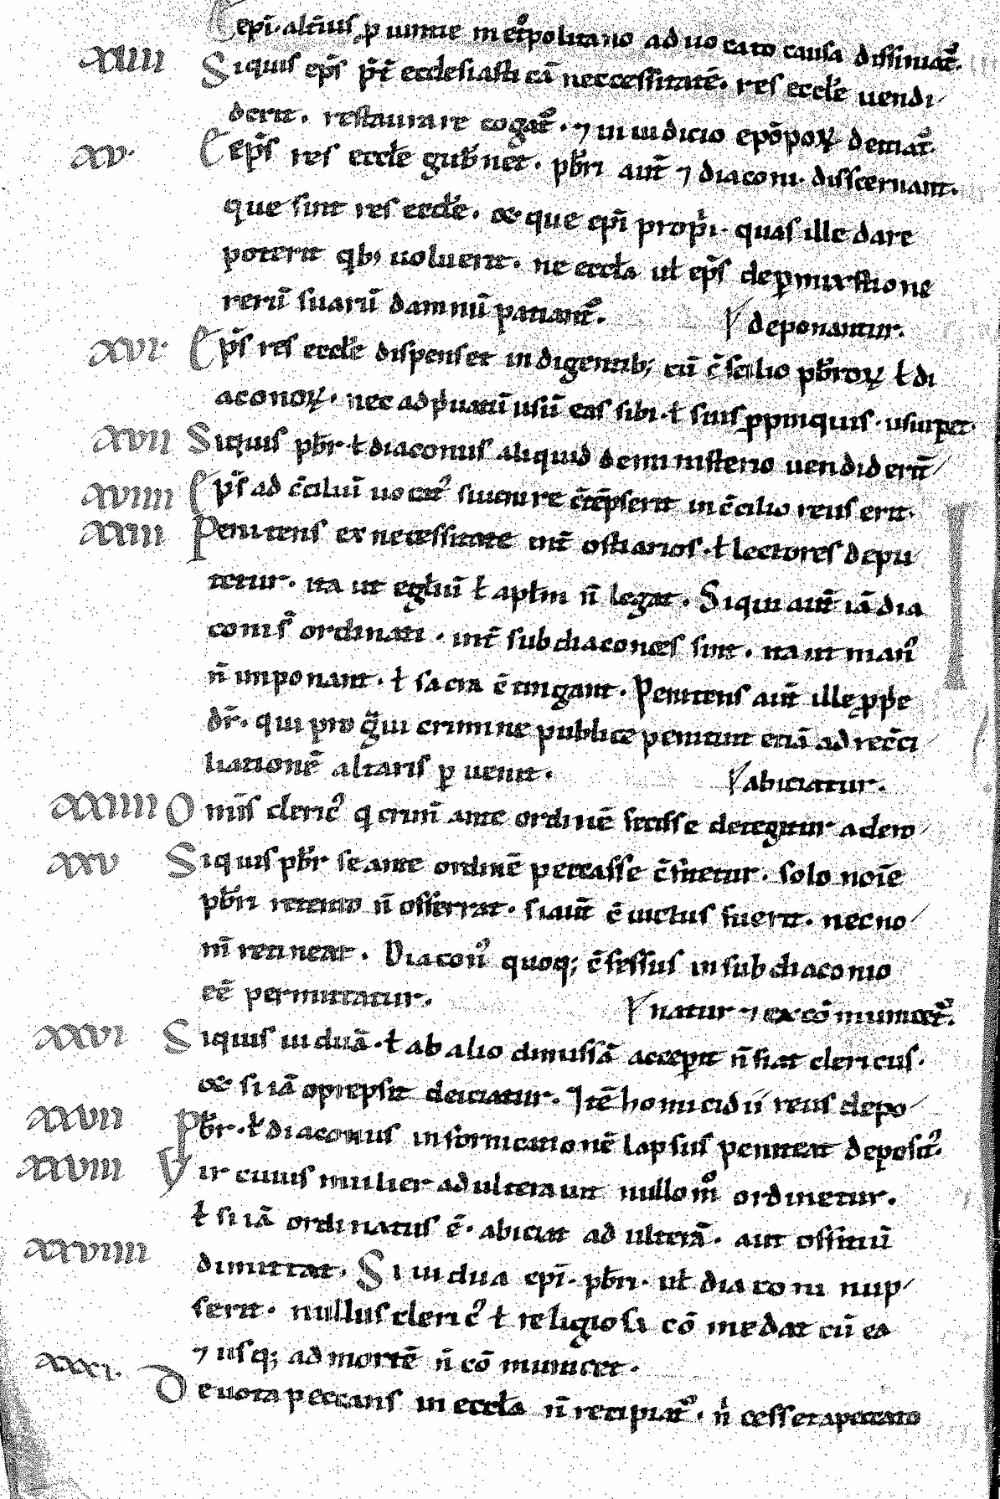 epi. alt̃ius ꝑ uiuiue in et̊politano aduocato causa dissimiat᷑.
XIIII Siquis ep̃s p̃t ecclesiasticã neccessitatẽ. res eccl̃e uendi
derit. restaurare cogat᷑. ⁊ in iudicio ep̃oꝝ deiciat᷑.
XV. Ep̃s res eccl̃e gub̃net. pb̃ri aut̃ ⁊ diaconi. discernant.
que sint res eccl̃e. & que ep̃i prop̃i. quas ille dare
poterit qb; uoluerit. ne eccl̃a ul̃ ep̃s de ꝑmixstione
rerũ suarũ damnũ patiant᷑. deponantur.
XVI. Ep̃s res eccl̃e dispenset indigentib; cũ c̃silio pb̃roꝝ ł di
aconoꝝ. nec ad p̃uatũ usũ eas sibi. ł suis ꝓpinquis. usurpet.
XVII Siquis pb̃r. ł diaconus aliquid de ministerio uendiderit
XVIIII Ep̃s ad c̃ciliũ uocat᷑ siuenire c̃tẽpserit in c̃cilio reus erit.
XXIII Penitens ex necessitate int̃ ostiarios. ł lectores depu
tetur. ita ut eglĩũ ł aplm̃ ñ legat. Siqui aut̃ iã dia
coni s̃ ordinati. int̃ subdiacones sint. ita ut man᷒
ñ imponant. ł sacra c̃tingant. Penitens aut̃ ille ꝓp̃e
dr̃. qui pro g̃ui crimine publice penituit etiã ad recc̃i
liationẽ altaris ꝑuenit. abiciatur.
XXIIII Omĩs cleric᷒ q crim̃ ante ordinẽ fecisse detegitur a clero
XXV Siquis pb̃r se ante ordinẽ peccasse c̃fitetur. solo noĩe
pb̃ri retento ñ offerrat. si aut̃ c̃uictus fuerit. nec no
m̃ retineat. Diacon᷒ quoq; c̃fessus in subdiaconio
eẽ permittatur. natur ⁊ excõmunicet᷑.
XXVI Siquis uiduã. ł ab alio dimissã acceperit ñ fiat clericus.
& si iã oprepsit deiciatur. Itẽ homicidii reus depo
XXVII Pb̃r. ł diaconus in fornicationẽ lapsus peniteat deposit᷒.
XXVIII Vir cuius mulier adulterauit nullo m̊ ordinetur.
ł si iã ordinatus ẽ. abiciat adulterã. aut offitiũ
XXVIIII dimittat. Si uidua ep̃i. pb̃ri. ul̃ diaconi nup
serit. nullus cleric᷒ ł religiosa cõmedat cũ ea
⁊ usq; ad mortẽ ñ cõmunicet.
XXXI. Deuota peccans in eccl̃a ñ recipiat᷑. ñ cesset a peccato